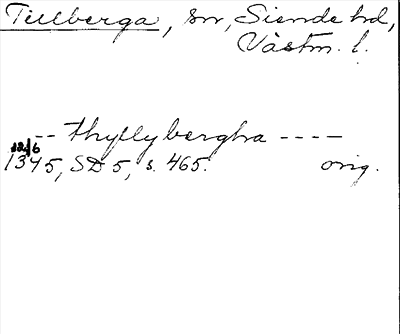 Tillberga, sn, Siende hd,
Västm. l.
-- thyllybergha ----
12/6
1345, SD 5, s. 465. orig.